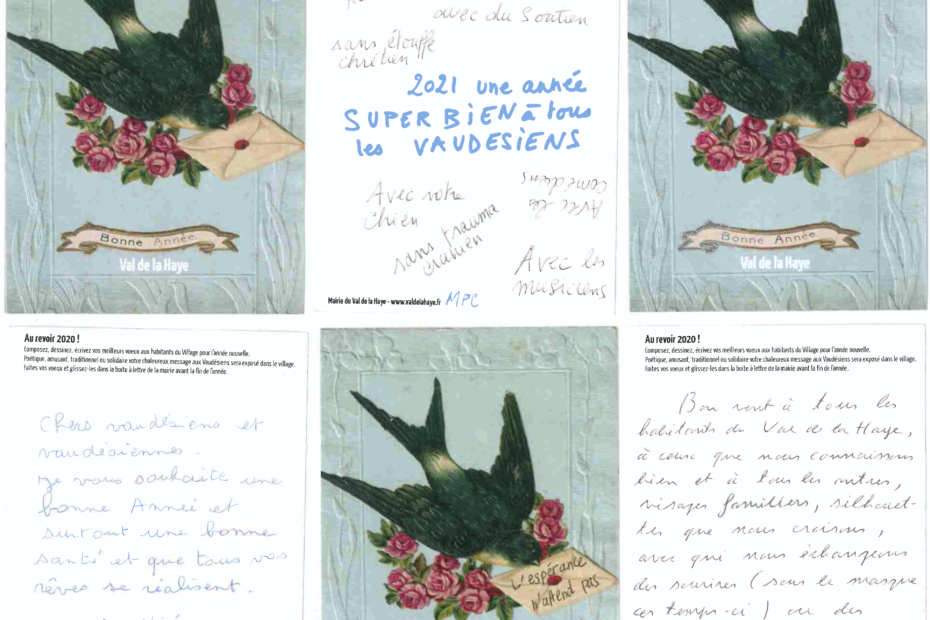 Bonne Année
Val de la Haye
avec du Soutien
sans étouffe
chrétien
2021 une année
SUPER BIEN à tous
les VAUDESIENS
Avec les
comédiens
Avec votre
chien
sans trauma
crânien
Avec les
musiciens
Mairie du Val de la Haye - www.valdelahaye.fr MPC
Bonne Année
Val de la Haye
Au revoir 2020 !
Composez, dessinez, écrivez vos meilleurs voeux aux habitants du Village pour l'année nouvelle.
Poétique, amusant, traditionnel ou solidaire votre chaleureux message aux Vaudésiens sera exposé dans le village.
Faites vos voeux et glissez-les dans la boite à lettre de la mairie avant la fin de l'année.
Chers vaudésiens et
vaudésiennes.
Je vous souhaite une
bonne Année et
surtout une bonne
santé et que tous vos
rêves se réalisent.
L'espérance
n'attend pas
Au revoir 2020 !
Composez, dessinez, écrivez vos meilleurs voeux aux habitants du Village pour l'année nouvelle.
Poétique, amusant, traditionnel ou solidaire votre chaleureux message aux Vaudésiens sera exposé dans le village.
Faites vos voeux et glissez-les dans la boite à lettre de la mairie avant la fin de l'année.
Bon vent à tous les
habitants du Val de la Haye,
à ceux que nous connaissons
bien et à tous les autres,
visages familiers, silhouet-
tes que nous croisons,
avec qui nous échangeons
des sourires (sous le masque
ces temps-ci) ou des